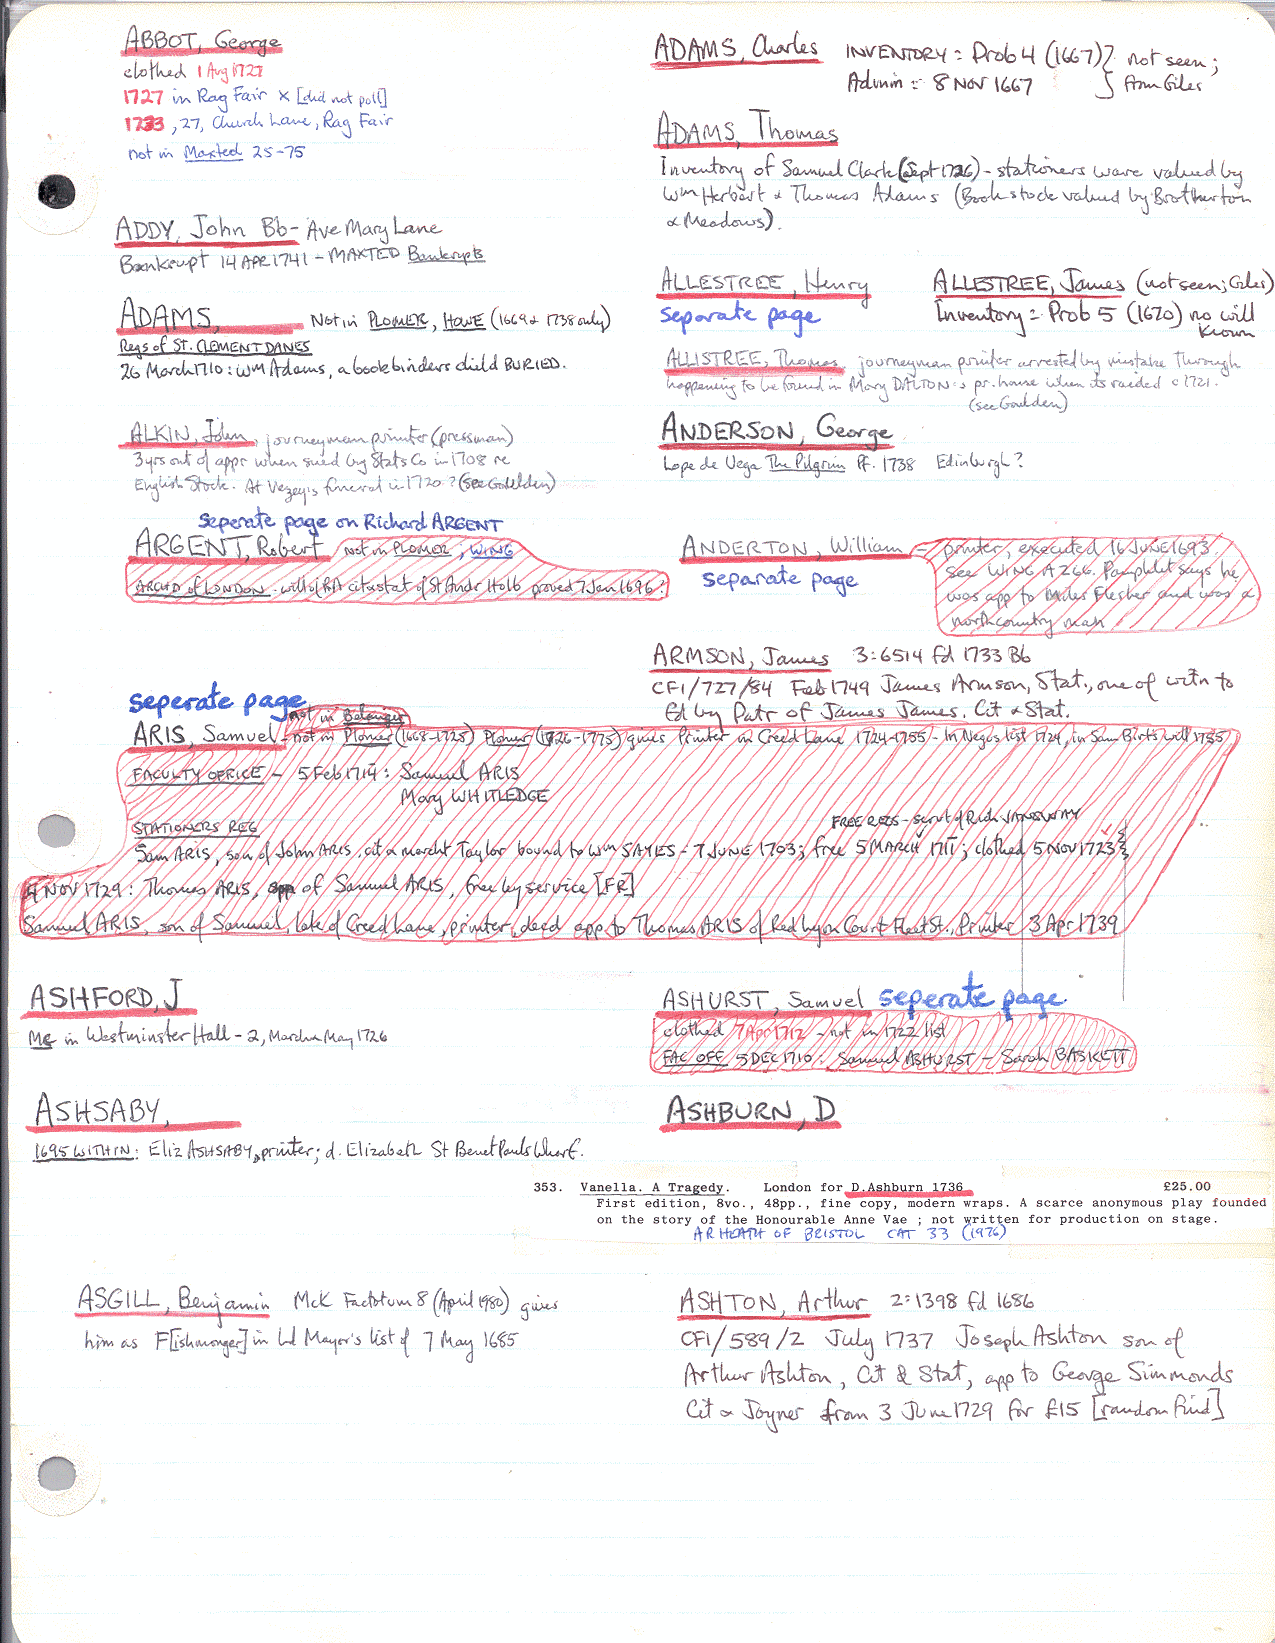 ABBOT, George
clothed 1 Aug 1727
1727 in Rag Fair X [did not poll]
1733, 27, Church Lane, Rag Fair
not in Maxted 25-75
ADAMS, Charles INVENTORY = Prob 4 (1667) } not seen;
Admin = 8 NOV 1667 } Ann Giles
ADAMS, Thomas
Inventory of Samuel Clark (Sept 1726) - stationers ware valued by
Wm Herbert & Thomas Adams (Book stock valued by Brotherton
& Meadows).
ADDY, John Bb - Ave Mary Lane
Bankrupt 14 APR 1741 - MAXTED Bankrupts
ADAMS, Not in PLOMER, HOWE (1669 & 1738 only)
Regs of St. CLEMENT DANES
26 March 1710: Wm Adams, a bookbinders child BURIED.
ALLESTREE, Henry
separate page
ALLESTREE, James (not seen; Giles)
Inventory = Prob 5 (1670) no will
known
ALLISTREE, Thomas, journeyman printer arrested by mistake through
happening to be found in Mary DALTON's pr. house when its raided c 1721.
(see Goulden)
ALKIN, John, journeyman printer (pressman)
3 yrs out of appr when sued by Stats Co in 1708 re
English Stock. At Vezey's funeral in 1720? (see Goulden)
ANDERSON, George
Lope de Vega The Pilgrim Pf. 1738 Edinburgh?
seperate page on Richard ARGENT
ARGENT, Robert not in PLOMER, WING
ARCHD of LONDON - will of RA cit & stat of St Andr Holb proved 7 Jan 1696?
ANDERTON, William - printer, executed 16 JUNE 1693.
separate page
See WING A266. Pamphlet says he
was app to Miles Flesher and was a
north country man
ARMSON, James 3:6514 fd 1733 Bb
CF1/727/84 Feb 1749 James Armson, Stat., one of witn to
fd by Patr of James James, Cit & Stat.
seperate page
not in Belanger
ARIS, Samuel - not in Plomer (1668-1725) Plomer (1726-1775) gives Printer in Creed Lane 1724-1755 - In Negus list 1724, in Sam Birts will 1755
FACULTY OFFICE - 5 Feb 1714: Samuel ARIS
Mary WHITLEDGE
STATIONERS REG
FREE REGS - servt of Rich JANEWAY
Sam ARIS, son of John ARIS, cit & marcht Taylor bound to Wm SAYES - 7 JUNE 1703; free 5 MARCH 1711; clothed 5 NOV 1723
4 NOV 1729: Thomas ARIS, app of Samuel ARIS, free by service [FR]
Samuel ARIS, son of Samuel, late of Creed Lane, printer, decd app to Thomas ARIS of Red Lyon Court Fleet St., Printer 3 Apr 1739
ASHFORD, J
MC in Westminster Hall - 2, March & May 1726
ASHURST, Samuel seperate page
clothed 7 Apr 1712 - not in 1722 list
FAC OFF 5 DEC 1710: Samuel ASHURST - Sarah BASKETT
ASHSABY,
1695 WITHIN: Eliz ASHSABY, printer; d. Elizabeth St Benet Pauls Wharf.
ASHBURN, D
353. Vanella. A Tragedy. London for D.Ashburn 1736 £25.00
First edition, 8vo., 48pp., fine copy, modern wraps. A scarce anonymous play founded
on the story of the Honourable Anne Vae ; not written for production on stage.
AR HEATH OF BRISTOL CAT 33 (1976)
ASGILL, Benjamin McK Factotum 8 (April 1980) gives
him as F[ishmonger] in Ld Mayor's list of 7 May 1685
ASHTON, Arthur 2:1398 fd 1686
CF1/589/2 July 1737 Joseph Ashton son of
Arthur Ashton, Cit & Stat, app to George Simmonds
Cit & Joyner from 3 June 1729 for £15 [random find]